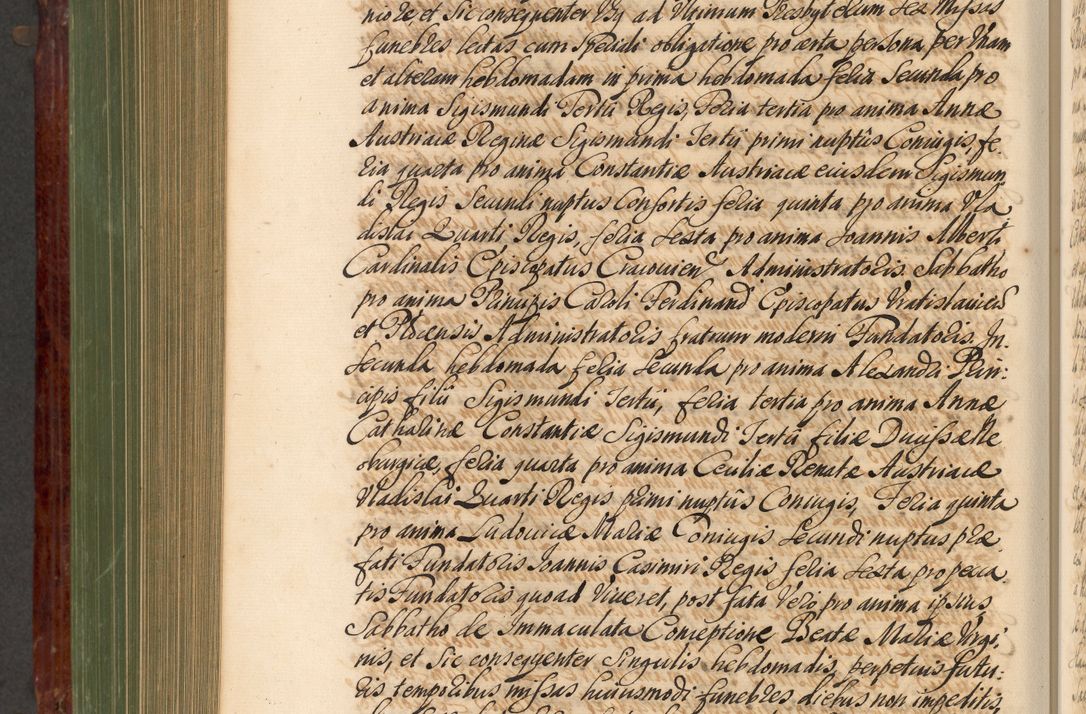 niore, et sic consequenter usq ad Ultimum Presbyterum sex Missas
funebres lectas cum speciali obligatione pro certa persona per Unam
et alteram hebdomadam in prima hebdomada feria Secunda pro
anima Sigismundi Tertii Regis, Feria tertia pro anima Annæ
Austriacæ Reginæ Sigismundi Tertii primi nuptiis Coniugis, fe.
ria quarta pro anima Constantiæ Austriacæ eiusdem Sigismun
di Regis Secundi nuptus Consortis feria quinta pro anima Vla
dislai Quarti Regis, feria sexta pro anima Joannis Alberti
Cardinalis Episcopatus Cracouien Administratoris. Sabbatho
pro anima Principis Caroli Ferdinand Episcopatus Vratislauien
et Plocensis Administratoris fratrum moderni Fundatoris. In.
secunda hebdomada feria secunda pro anima Alexandri Prin:
cipis filii Sigismundi Tertii, feria tertia pro anima Annæ
Catharinæ Constantiæ Sigismundi Tertii filiæ Ducissæ Ne
oburgicæ, feria quarta pro anima Ceciliæ Renatæ Austriacæ
Vladislai Quarti Regis primi nuptiis Coniugis, Feria quinta
pro anima Ludouicæ Mariæ Coniugis secundi nuptus præ.
fati Fundatoris Joannis Casimiri Regis feria sexta pro pecca
tis Fundatoris quoad Viueret, post fata Vero pro anima ipsius
Sabbatho de Immaculata Conceptione Beatæ Mariæ Virgi,
nis, et sic consequenter singulis hebdomadis, perpetuis futu:
ris temporibus missas huiusmodi funebres diebus non impeditis,